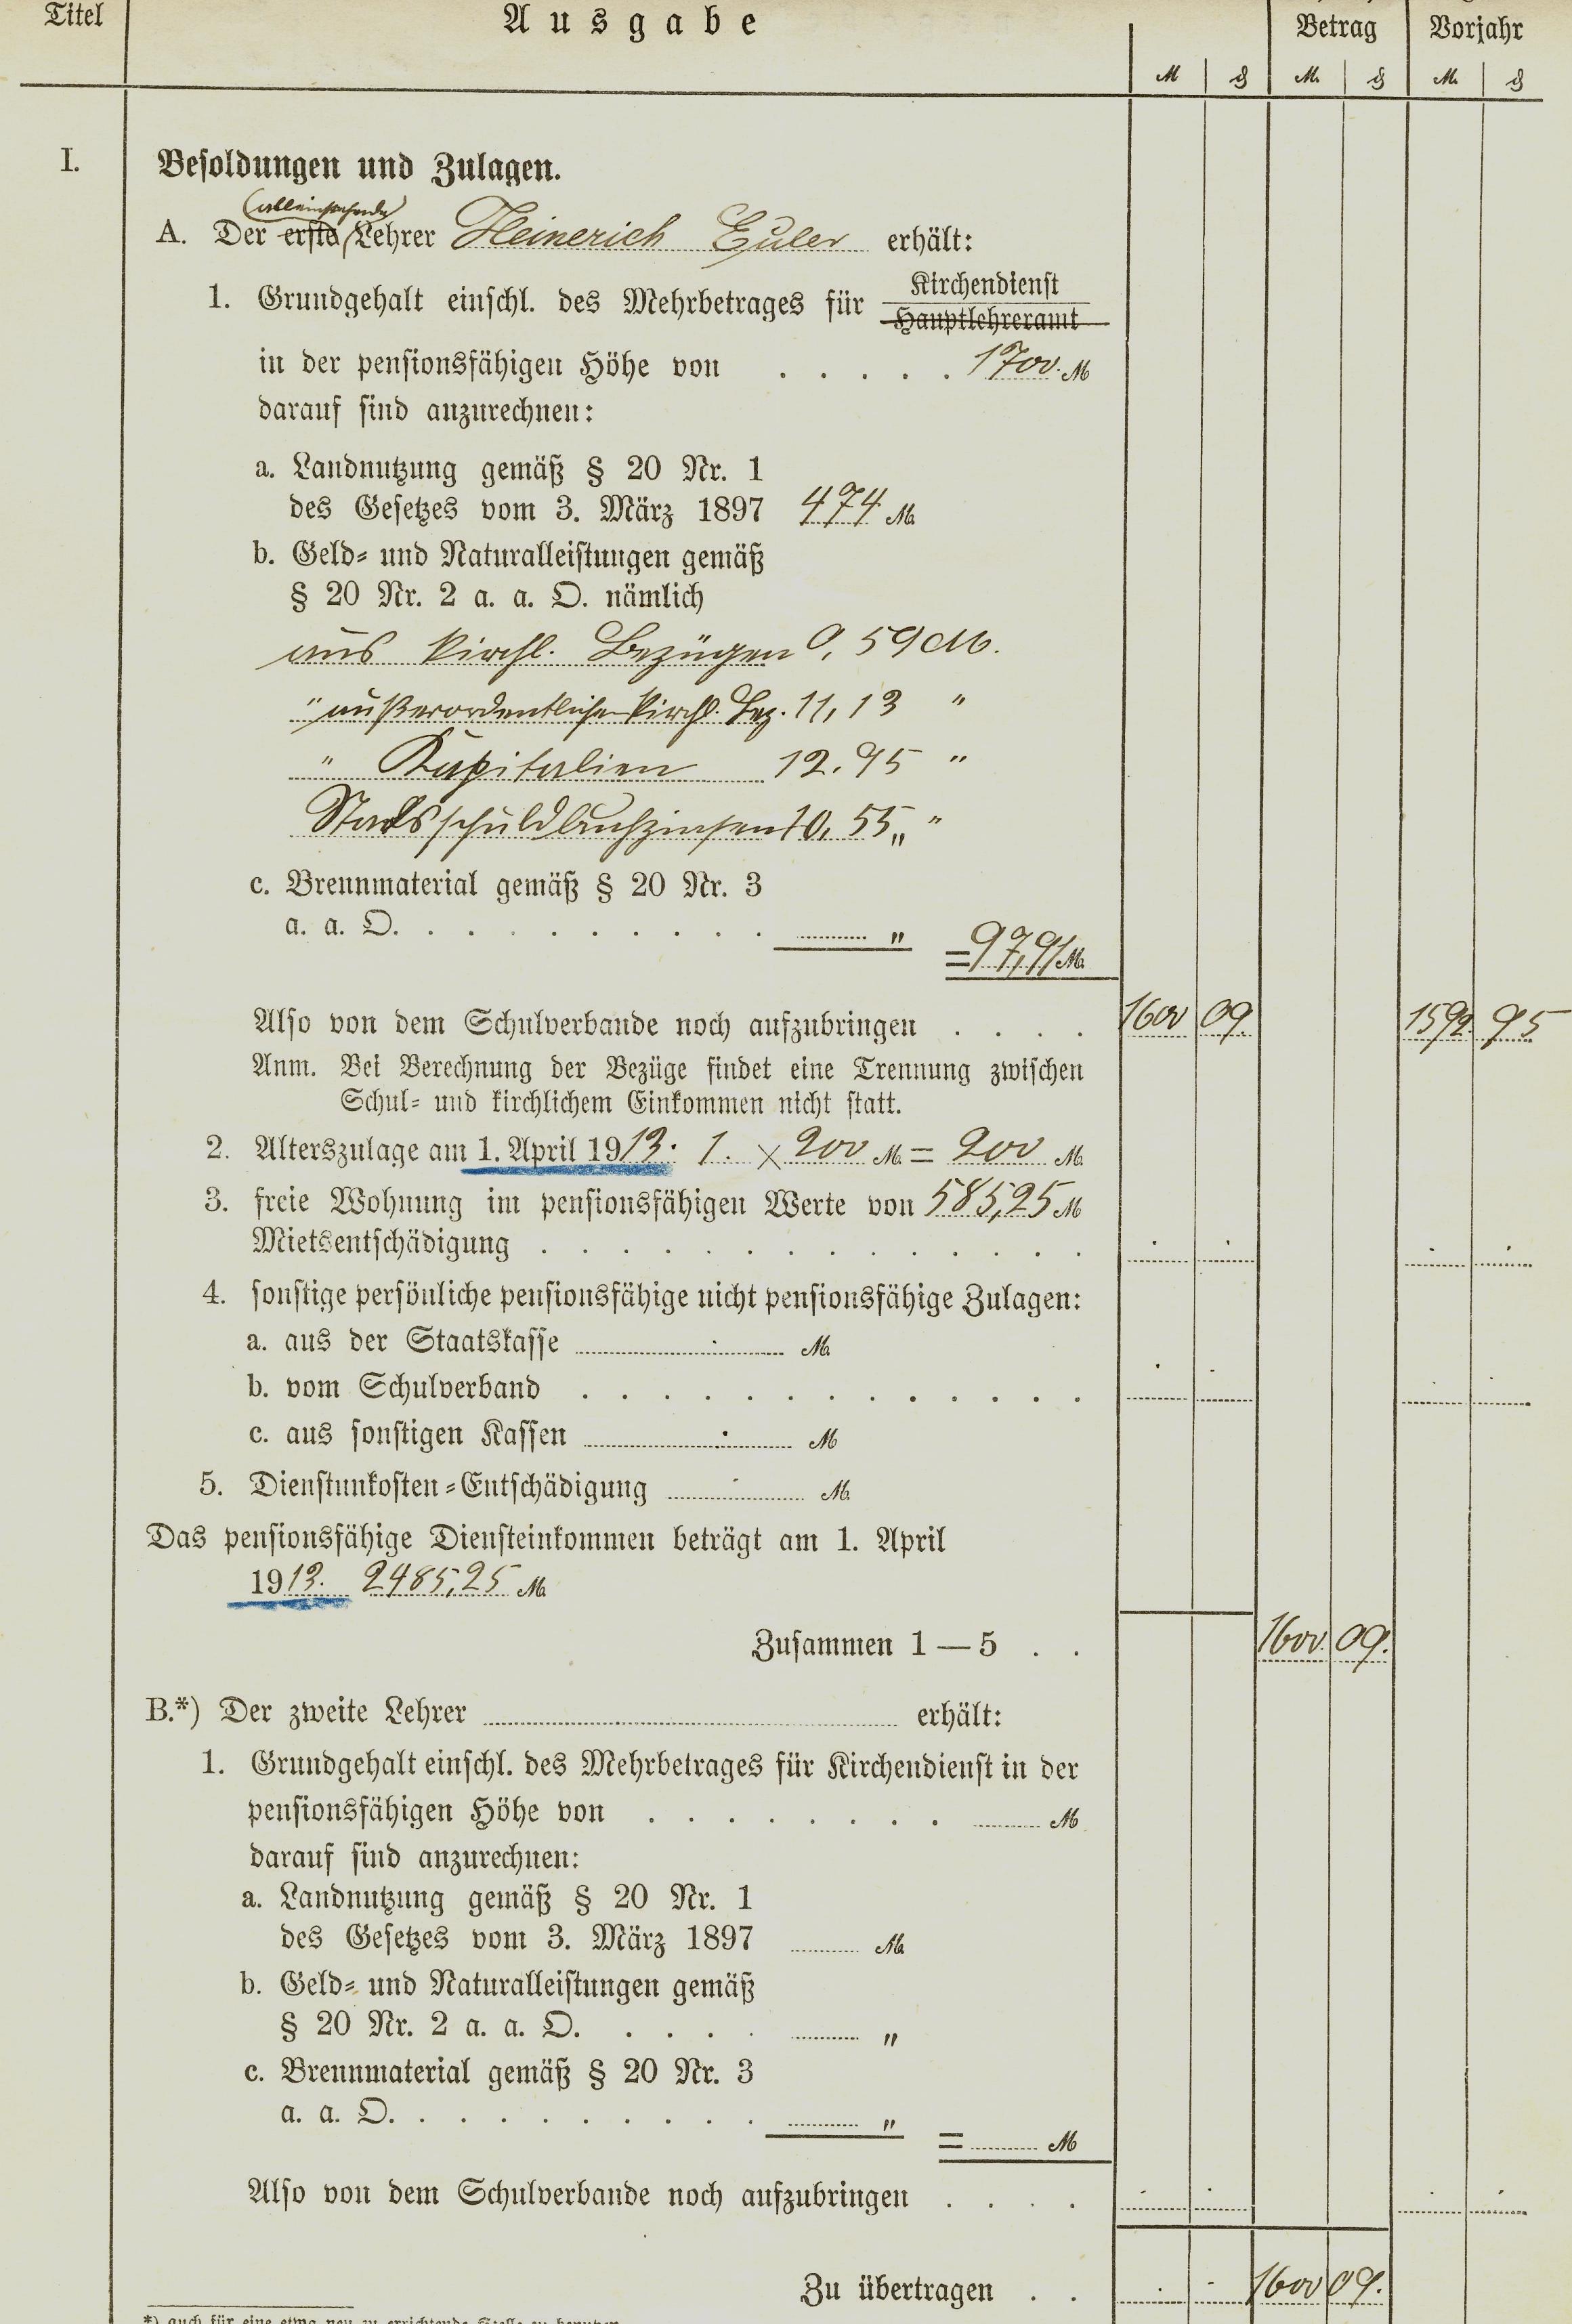 Titel
Ausgabe
Betrag
Vorjahr
M ₰ M. ₰ M. ₰
I.
Besoldungen und Zulagen.
(alleinstehende)
A. Der erste Lehrer Heinerich Euler erhält:
1. Grundgehalt einschl. des Mehrbetrages für Kirchendienst
Hauptlehreramt
in der pensionsfähigen Höhe von . . . . . 1700. M
darauf sind anzurechnen:
a. Landnutzung gemäß § 20 Nr. 1
des Gesetzes vom 3. März 1897 474 M.
b. Geld- und Naturalleistungen gemäß
§ 20 Nr. 2 a. a. O. nämlich
aus kirchl. Bezügen 0,59 M.
" außerordentlichen kirchl. Bez. 11,13 "
" Kapitalien 12.95 "
Staatsschuldbuchzinsen 10,55 " "
c. Brennmaterial gemäß § 20 Nr. 3
a. a. O. . . . . . . . . . " = 97,91 M.
Also von dem Schulverbande noch aufzubringen . . . . 1600 09. 1592. 95
Anm. Bei Berechnung der Bezüge findet eine Trennung zwischen
Schul- und kirchlichem Einkommen nicht statt.
2. Alterszulage am 1. April 1913. 1. × 200 M. = 200 M.
3. freie Wohnung im pensionsfähigen Werte von 585,25 M
Mietsentschädigung . . . . . . . . . . . . . .
4. sonstige persönliche pensionsfähige nicht pensionsfähige Zulagen:
a. aus der Staatskasse M.
b. vom Schulverband . . . . . . . . . . . . .
c. aus sonstigen Kassen M
5. Dienstunkosten-Entschädigung M.
Das pensionsfähige Diensteinkommen beträgt am 1. April
1913. 2485,25 M.
Zusammen 1 — 5 . . 1600. 09.
B.*) Der zweite Lehrer erhält:
1. Grundgehalt einschl. des Mehrbetrages für Kirchendienst in der
pensionsfähigen Höhe von . . . . . . . . M
darauf sind anzurechnen:
a. Landnutzung gemäß § 20 Nr. 1
des Gesetzes vom 3. März 1897 M.
b. Geld- und Naturalleistungen gemäß
§ 20 Nr. 2 a. a. O. . . . . "
c. Brennmaterial gemäß § 20 Nr. 3
a. a. O. . . . . . . . . . "
= M
Also von dem Schulverbande noch aufzubringen . . . .
Zu übertragen . . 1600 09.
*) auch für eine etwa neu zu errichtende Stelle zu benutzen